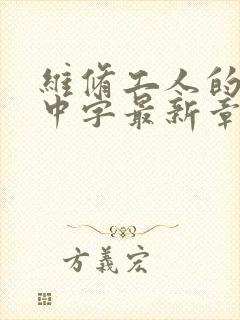 維脩工人的
中字最新章
方義宏